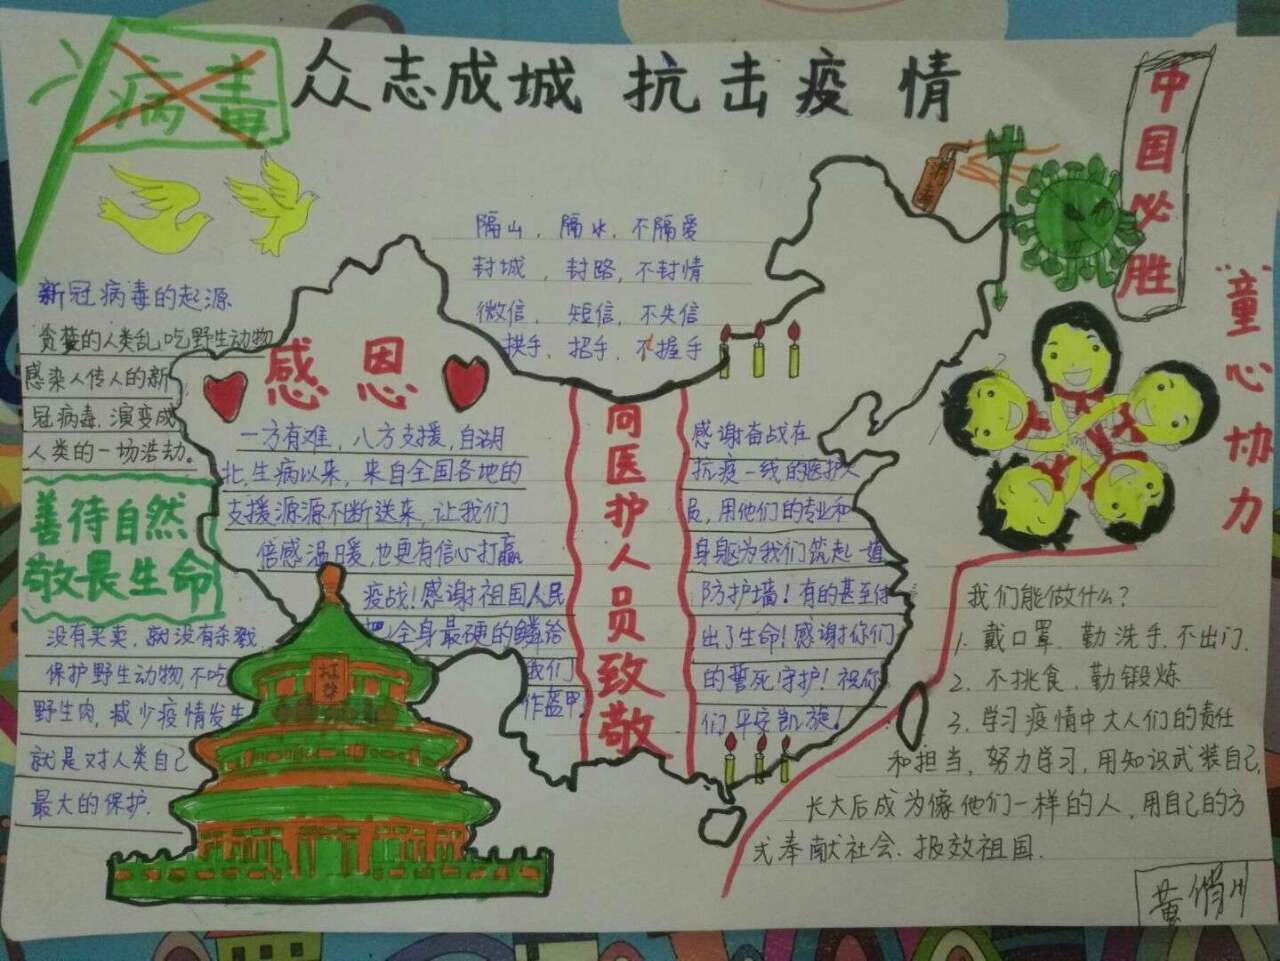 病毒
众志成城 抗击疫情
中国必胜
消毒
"童心协力
隔山，隔水，不隔爱
封城，封路，不封情
微信，短信，不失信
拱手、招手、不握手
新冠病毒的起源
贪婪的人类乱吃野生动物
感染人传人的新
冠病毒，演变成
人类的一场浩劫。
善待自然
敬畏生命
没有买卖，就没有杀戮
保护野生动物，不吃
野生肉，减少疫情发生
就是对人类自己
最大的保护.
感恩
一方有难，八方支援，自湖
北，生病以来，来自全国各地的
支援源源不断送来，让我们
倍感温暖，也更有信心打赢
疫战！感谢祖国人民
把全身最硬的鳞给
我们
作盔甲。
向医护人员致敬
感谢奋战在
抗疫一线的医护人
员，用他们的专业和
身躯为我们筑起一道
防护墙！有的甚至付
出了生命！感谢你们
的誓死守护！祝你
们平安凯旋！
我们能做什么?
1. 戴口罩、勤洗手、不出门.
2. 不挑食、勤锻炼
3. 学习疫情中大人们的责任
和担当，努力学习，用知识武装自己，
长大后成为像他们一样的人，用自己的方
式奉献社会、报效祖国.